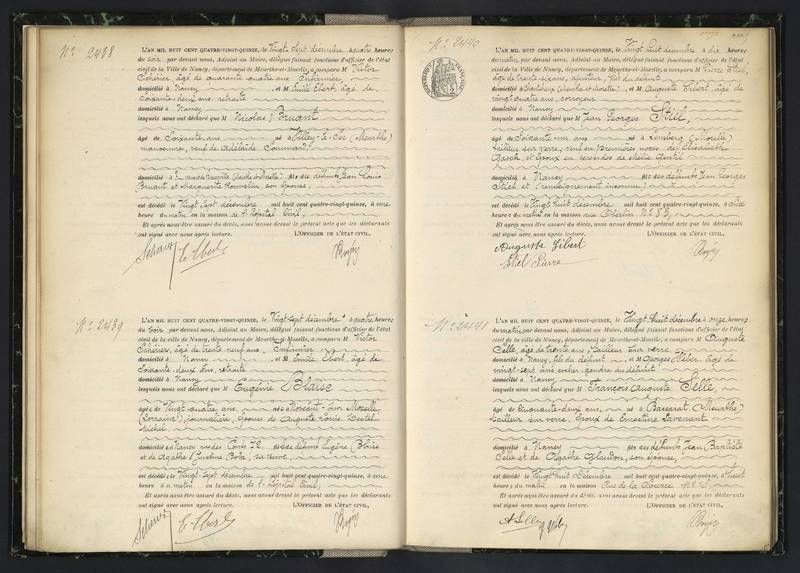 N° 2438
L'AN MIL HUIT CENT QUATRE-VINGT-QUINZE, le Vingt-Sept décembre, à quatre heures
du soir, par devant nous, Adjoint au Maire, délégué faisant fonctions d'officier de l'état
civil de la Ville de Nancy, département de Meurthe-et-Moselle, a comparu M Victor
âgé de quarante quatre ans, Infirmier,
domicilié à Nancy et M Emile Ebert, âgé de
Soixante-deux ans, retraité
domicilié à Nancy
lesquels nous ont déclaré que M Nicolas Bruant
âgé de Soixante ans né à (Meurthe)
manoeuvre, veuf de Adélaïde
domicilié à fils des défunts Jean Louis
Bruant et Marguerite son épouse,
est décédé le Vingt Sept décembre mil huit cent quatre-vingt-quinze, à une
heure du matin en la maison de l'Hôpital Civil,
Et après nous être assuré du décès, nous avons dressé le présent acte que les déclarants
ont signé avec nous après lecture. L'OFFICIER DE L'ÉTAT CIVIL,
E. Ebert
N° 2439
L'AN MIL HUIT CENT QUATRE-VINGT-QUINZE, le Vingt-Sept décembre à quatre heures
du soir, par devant nous, Adjoint au Maire, délégué faisant fonctions d'officier de l'état
civil de la Ville de Nancy, département de Meurthe-et-Moselle, a comparu M Victor
âgé de trente neuf ans, Infirmier
domicilié à Nancy et M Emile Ebert, âgé de
Soixante-deux ans, retraité
domicilié à Nancy
lesquels nous ont déclaré que M Eugénie Blaise
âgée de Vingt-quatre ans, née à Novéant-sur-Moselle
(Lorraine), journalière, épouse de Auguste Louis
Michel
domiciliée à Nancy rue des 72 fille de défunt Eugène Blaise
et de Agathe Justine sa veuve,
est décédée le Vingt-Sept décembre mil huit cent quatre-vingt-quinze, à une
heure du matin en la maison de l'Hôpital Civil,
Et après nous être assuré du décès, nous avons dressé le présent acte que les déclarants
ont signé avec nous après lecture. L'OFFICIER DE L'ÉTAT CIVIL,
E. Ebert
N° 2440
L'AN MIL HUIT CENT QUATRE-VINGT-QUINZE, le Vingt huit décembre à dix heures
du matin, par devant nous, Adjoint au Maire, délégué faisant fonctions d'officier de l'état
civil de la Ville de Nancy, département de Meurthe-et-Moselle, a comparu M Pierre Stiel,
âgé de trente-six ans, ajusteur, fils du défunt
domicilié à (Meurthe et Moselle) et M Auguste Gibert, âgé de
vingt quatre ans, corroyeur
domicilié à Nancy
lesquels nous ont déclaré que M Jean Georges Stiel,
âgé de Soixante-un ans né à Lemberg (Moselle)
tailleur sur verre, veuf en premières noces de Elisabeth
et époux en secondes de
domicilié à Nancy fils des défunts Jean Georges
Stiel et (renseignement inconnu)
est décédé le Vingt huit décembre mil huit cent quatre-vingt-quinze, à six
heures du matin en la maison rue Oberlin N°
Et après nous être assuré du décès, nous avons dressé le présent acte que les déclarants
ont signé avec nous après lecture. L'OFFICIER DE L'ÉTAT CIVIL,
Auguste Gibert
Stiel Pierre
N° 2441
L'AN MIL HUIT CENT QUATRE-VINGT-QUINZE, le Vingt huit décembre à onze heures
du matin, par devant nous, Adjoint au Maire, délégué faisant fonctions d'officier de l'état
civil de la Ville de Nancy, département de Meurthe-et-Moselle, a comparu M Auguste
Celle, âgé de trente ans, tailleur sur verre
domicilié à Nancy, fils du défunt et M Georges âgé de
vingt-sept ans, gendre du défunt
domicilié à Nancy
lesquels nous ont déclaré que M François Auguste Celle,
âgé de Cinquante-deux ans, né à Baccarat (Meurthe)
tailleur sur verre, époux de Ernestine
domicilié à Nancy fils des défunts Jean Baptiste
Celle et de Agathe son épouse,
est décédé le Vingt huit Décembre mil huit cent quatre-vingt-quinze, à huit
heures du matin en la maison Rue de la Source N°
Et après nous être assuré du décès, nous avons dressé le présent acte que les déclarants
ont signé avec nous après lecture. L'OFFICIER DE L'ÉTAT CIVIL,